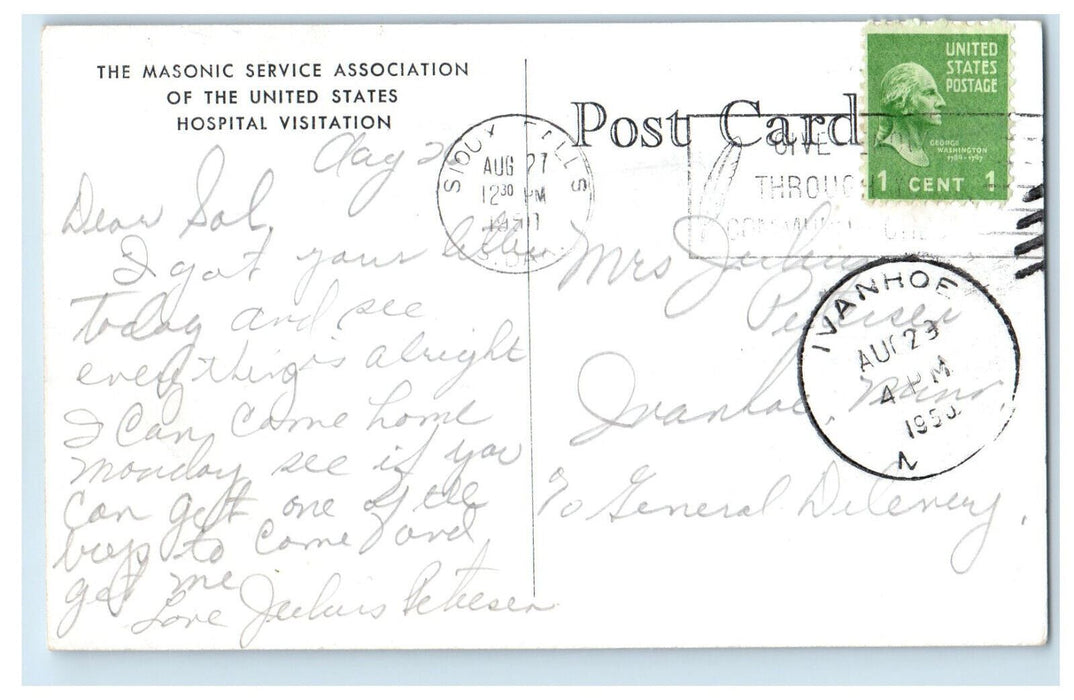 THE MASONIC SERVICE ASSOCIATION
OF THE UNITED STATES
HOSPITAL VISITATION
Dear Sal,
I got your letter
today and see
everything is alright
I can come home
monday see if you
can get one of the
boys to come and
get me
Love Julius Petersen
Post Card
SIOUX FALLS
AUG 27
12 30 PM
S. DAK.
GIVE
THROUGH
COMMUNITY CHEST
UNITED
STATES
POSTAGE
GEORGE
WASHINGTON
1789-1797
1 CENT 1
Mrs Julius
Petersen
Ivanhoe, Minn,
℅ General Delevery,
IVANHOE
AUG 29
4 PM
1950